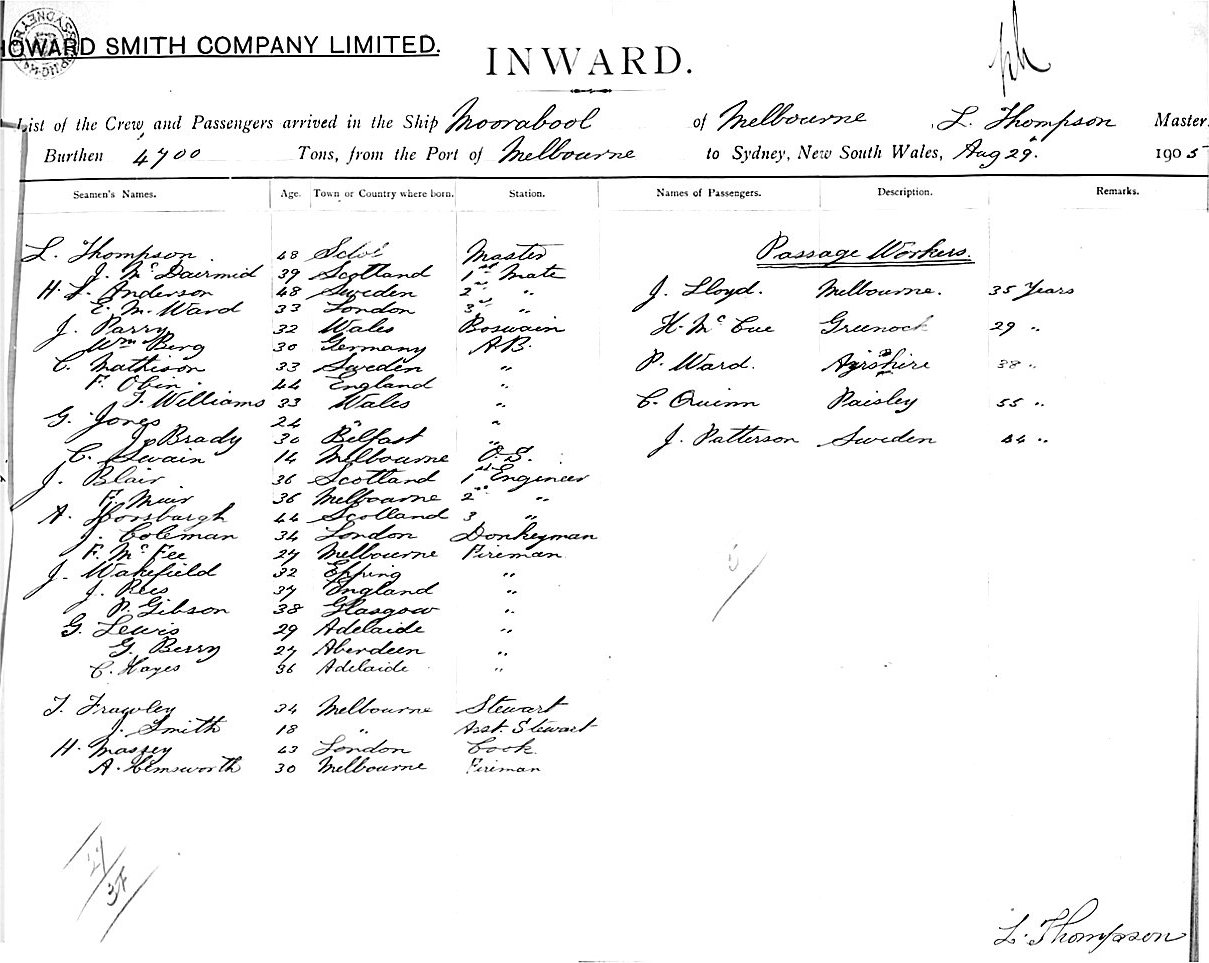 HOWARD SMITH COMPANY LIMITED.
INWARD.
List of the Crew, and Passengers arrived in the Ship Moorabool of Melbourne, L. Thompson Master.
Burthen 4700 Tons, from the Port of Melbourne to Sydney, New South Wales, Aug 29. 1905
Seamen's Names. Age. Town or Country where born. Station. Names of Passengers. Description. Remarks.
Passage Workers.
L. Thompson 48 Master
J. McDairmid 39 Scotland 1st Mate
H. L. Anderson 48 Sweden 2nd "
E. M. Ward 33 London 3rd "
J. Parry 32 Wales Boswain
Wm Berg 30 Germany A.B.
C. Mathison 33 Sweden "
F. Obin. 44 England "
J. Williams 33 Wales "
G. Jones 24 " "
Jo Brady 30 Belfast "
C. Swain 14 Melbourne O.S.
J. Blair 36 Scotland 1st Engineer
F. Muir 36 Melbourne 2nd "
A. Horsburgh 44 Scotland 3 "
J. Coleman 34 London Donkeyman
F. McFee 27 Melbourne Fireman
J. Wakefield 32 Epping "
J. Rees 37 England "
P. Gibson 38 Glasgow "
G. Lewis 29 Adelaide "
G. Berry 27 Aberdeen "
C. Hayes 36 Adelaide "
T. Frawley 34 Melbourne Stewart
J. Smith 18 " Asst. Stewart
H. Massey 43 London Cook
A. Hemsworth 30 Melbourne Fireman
J. Lloyd. Melbourne. 35 Years
H. McCue Greenock 29 "
P. Ward. Ayrshire 38 "
C. Quinn Paisley 55 "
J. Patterson Sweden 44 "
27
L. Thompson